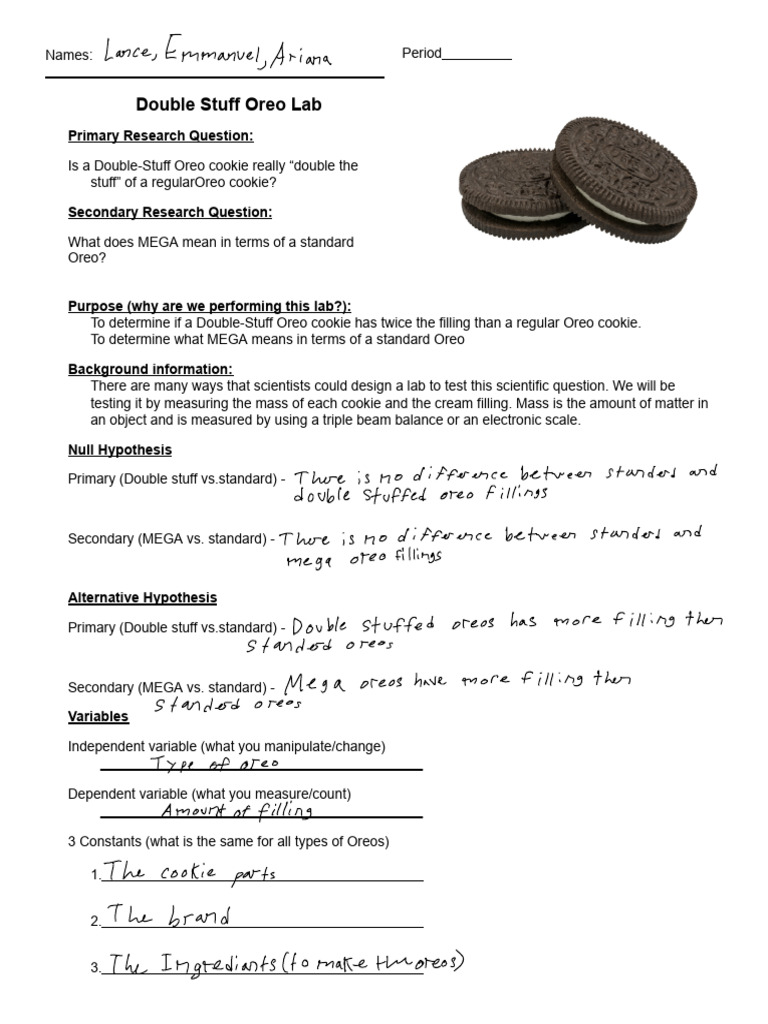 Names: Lance, Emmanuel, Ariana
Period__________
Double Stuff Oreo Lab
Primary Research Question:
Is a Double-Stuff Oreo cookie really “double the
stuff” of a regularOreo cookie?
Secondary Research Question:
What does MEGA mean in terms of a standard
Oreo?
Purpose (why are we performing this lab?):
To determine if a Double-Stuff Oreo cookie has twice the filling than a regular Oreo cookie.
To determine what MEGA means in terms of a standard Oreo
Background information:
There are many ways that scientists could design a lab to test this scientific question. We will be
testing it by measuring the mass of each cookie and the cream filling. Mass is the amount of matter in
an object and is measured by using a triple beam balance or an electronic scale.
Null Hypothesis
Primary (Double stuff vs.standard) - There is no difference between standers and
double stuffed oreo fillings
Secondary (MEGA vs. standard) - There is no difference between standers and
mega oreo fillings
Alternative Hypothesis
Primary (Double stuff vs.standard) - Double stuffed oreos has more filling then
standerd oreos
Secondary (MEGA vs. standard) - Mega oreos have more filling then
standerd oreos
Variables
Independent variable (what you manipulate/change)
Type of oreo
Dependent variable (what you measure/count)
Amount of filling
3 Constants (what is the same for all types of Oreos)
1. The cookie parts
2. The brand
3. The Ingrediants (to make the oreos)